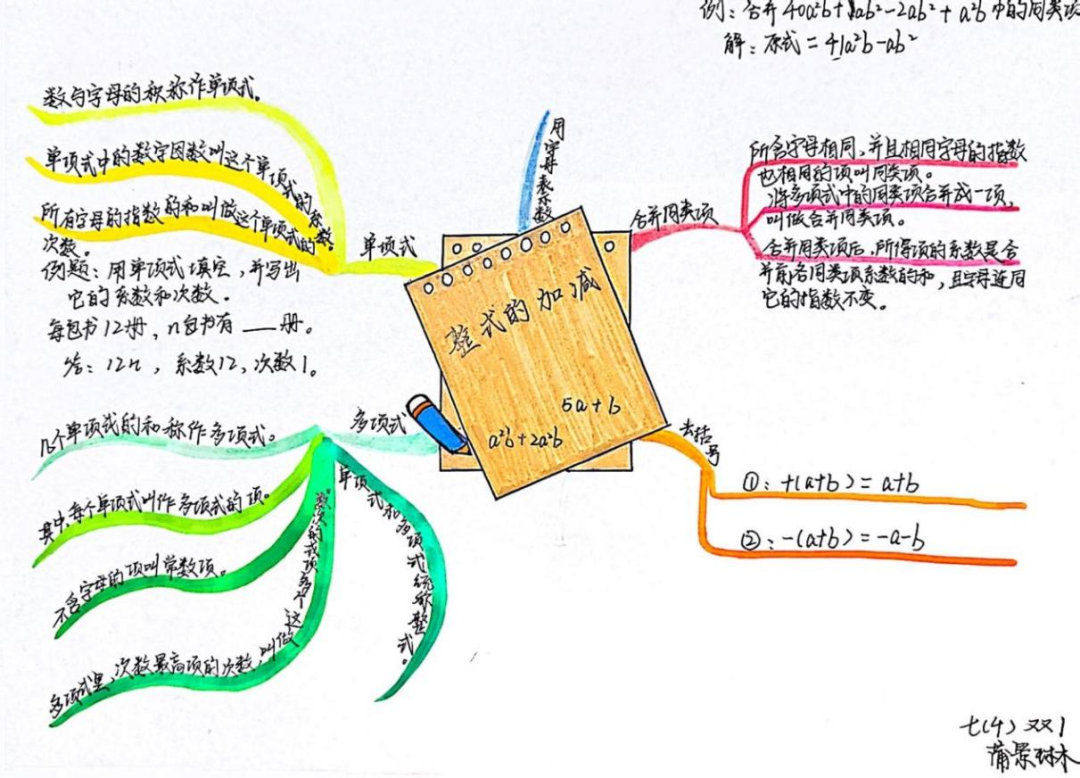 例：合并40a²b+1ab²-2ab²+a²b中的同类项
解：原式=41a²b-ab²
数与字母的积称作单项式。
单项式中的数字因数叫这个单项式的系数。
所有字母的指数的和叫做这个单项式的
次数。
例题：用单项式填空，并写出
它的系数和次数。
每包书12册，n包书有___册。
答：12n，系数12，次数1。
单项式
用字母表示数
合并同类项
所含字母相同，并且相同字母的指数
也相同的项叫同类项。
将多项式中的同类项合并成一项，
叫做合并同类项。
合并同类项后，所得项的系数是合
并前各同类项系数的和，且字母连同
它的指数不变。
整式的加减
5a+b
a²b+2a²b
多项式
几个单项式的和称作多项式。
其中，每个单项式叫作多项式的项。
不含字母的项叫常数项。
多项式里，次数最高项的次数，叫做
这个多项式的次数。
单项式和多项式统称整式。
去括号
①：+(a+b)=a+b
②：-(a+b)=-a-b
七(4)双1
蒲景琳